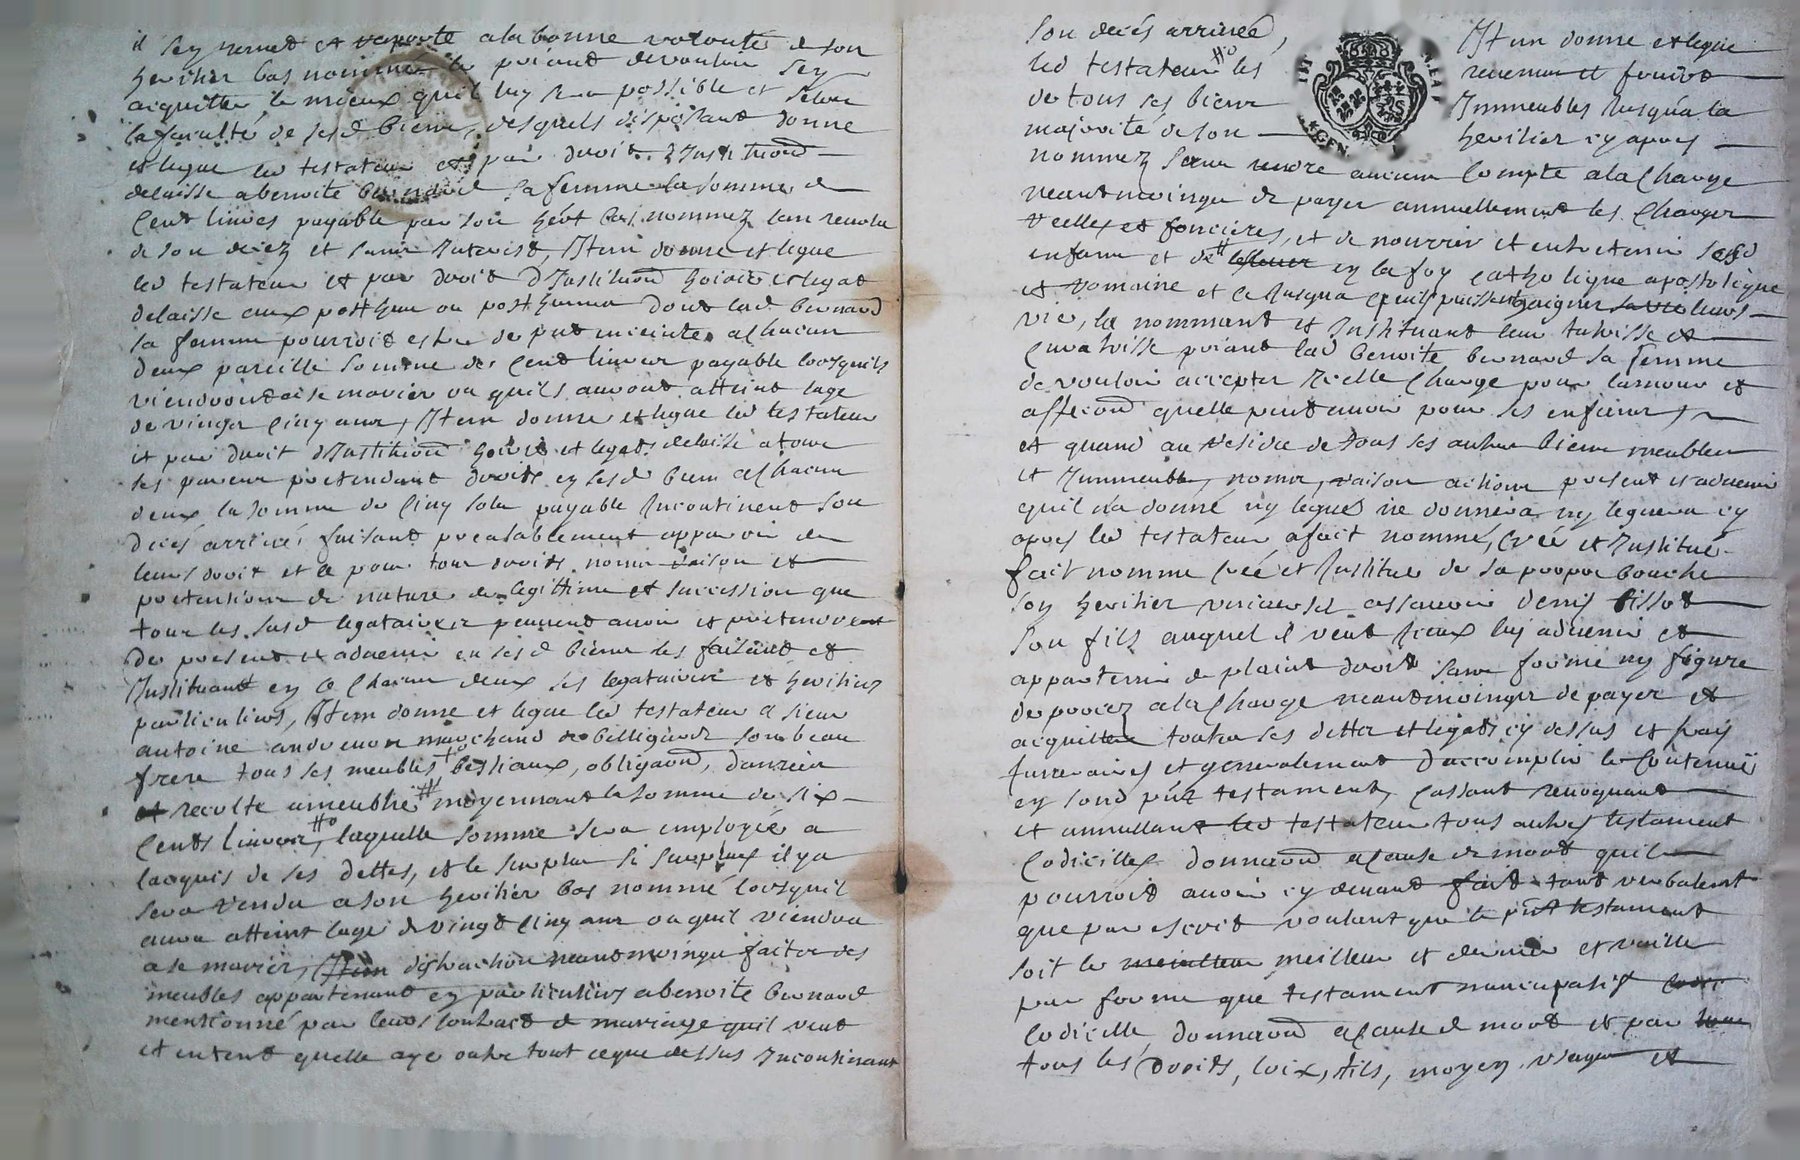 il s'en remet et raporte a la bonne volonté de son
heritier bas nommé le priant de vouloir s'en
aiquitter le mieux quil luy sera possible et selon
la faculté de sesd biens, desquels disposant donne
et legue led testateur et par droit d'Institu͠on
delaisse a benoite bernard sa femme la somme de
Cent livres payable par son herit bas nommez lan revolu
de son decez et sans Interest, Item donne et legue
led testateur et par droit d'Institu͠on hoirie et legat
delaisse aux posthume ou posthumes dont lad bernard
sa femme pourroit estre de pnt enceinte a chacun
deux pareille somme de Cent livres payable lorsquils
viendront a se marier ou quils auront atteint lage
de vingt cinq ans, Item donne et legue led testateur
et par droit d'Institu͠on hoirie et legat, delaisse a tous
ses parens pretendant droits en sesd biens a chacun
deux la somme de Cinq sols payable Incontinent son
decés arrivé, faisant prealablement apparoir de
leurs droit et ce pour tous droits, noms raison et
pretentions de nature de legittime et succession que
tous les susd legataires peuvent avoir et pretendre
de present et advenir en sesd biens les faisant et
Instituant en ce chacun deux ses legataires et heritiers
particuliers, Item donne et legue led testateur a sieur
antoine marchand de belligneux son beau
frere tous ses meubles bestiaux, obliga͠on, danrées
et recolte ameublie # moyennant la somme de six
Cents livres, #° laquelle somme sera employée a
lacquis de ses dettes, et le surplus si surplus il y a
sera rendu a son heritier bas nommé lorsquil
aura atteint lage de vingt cinq ans ou quil viendra
a se marier, Item distraction neantmoings faite des
meubles appartenant en particuliers a benoite bernard
mentionné par leurs contract de mariage quil veut
et entend quelle aye outre tout ceque dessus Incontinant
son decés arrivée, Item donne et legue
led testateur #° les revenus et fruits
de tous ses biens Immeubles Jusqu'a la
majorité de son heritier cy apres
nommez sans rendre aucun Compte a la Charge
neantmoings de payer annuellement les Charges
reelles et foncieres, et de nourrir et entretenir sesd
enfans et de # en la foy catholique apostolique
et romaine et ce Jusqua ce quils puissent gaigner leurs
vie, la nommant et Instituant leur tutrisse et
Curatrisse priant lad benoite bernard sa femme
de vouloir accepter Icelle Charge pour lamour et
affecti͠on quelle peut avoir pour ses enfans,
et quand au residu de tous ses autres biens meubles
et Immeubles, noms, raison actions present et advenir
quil n'a donné ny legués ne donnera ny leguera cy
apres led testateur a fait nommé, Créé et Institué
fait nomme Créé et Institue de sa propre bouche
son heritier universel assavoir denis tissot
son fils auquel il veut Iceux luy advenir et
appartenir de plaint droit sans forme ny figure
de procez a la Charge neantmoings de payer et
acquitter toutes ses dettes et legats cy dessus et frais
funeraires et generalement d'accomplir le Contenuë
en sond pnt testament, Cassant revoquant
et annullant led testateur tous autres testament
Codicilles donna͠on a cause de mort quil
pourroit avoir cy devant fait tant verbalemt
que par escrit voulant que le pnt testament
soit le meilleur et dernier et vaille
par forme que testament nuncupatif
Codicille, donna͠on a cause de mort et par
tous les droits, loix, stils, moyen, usages et
GEN.